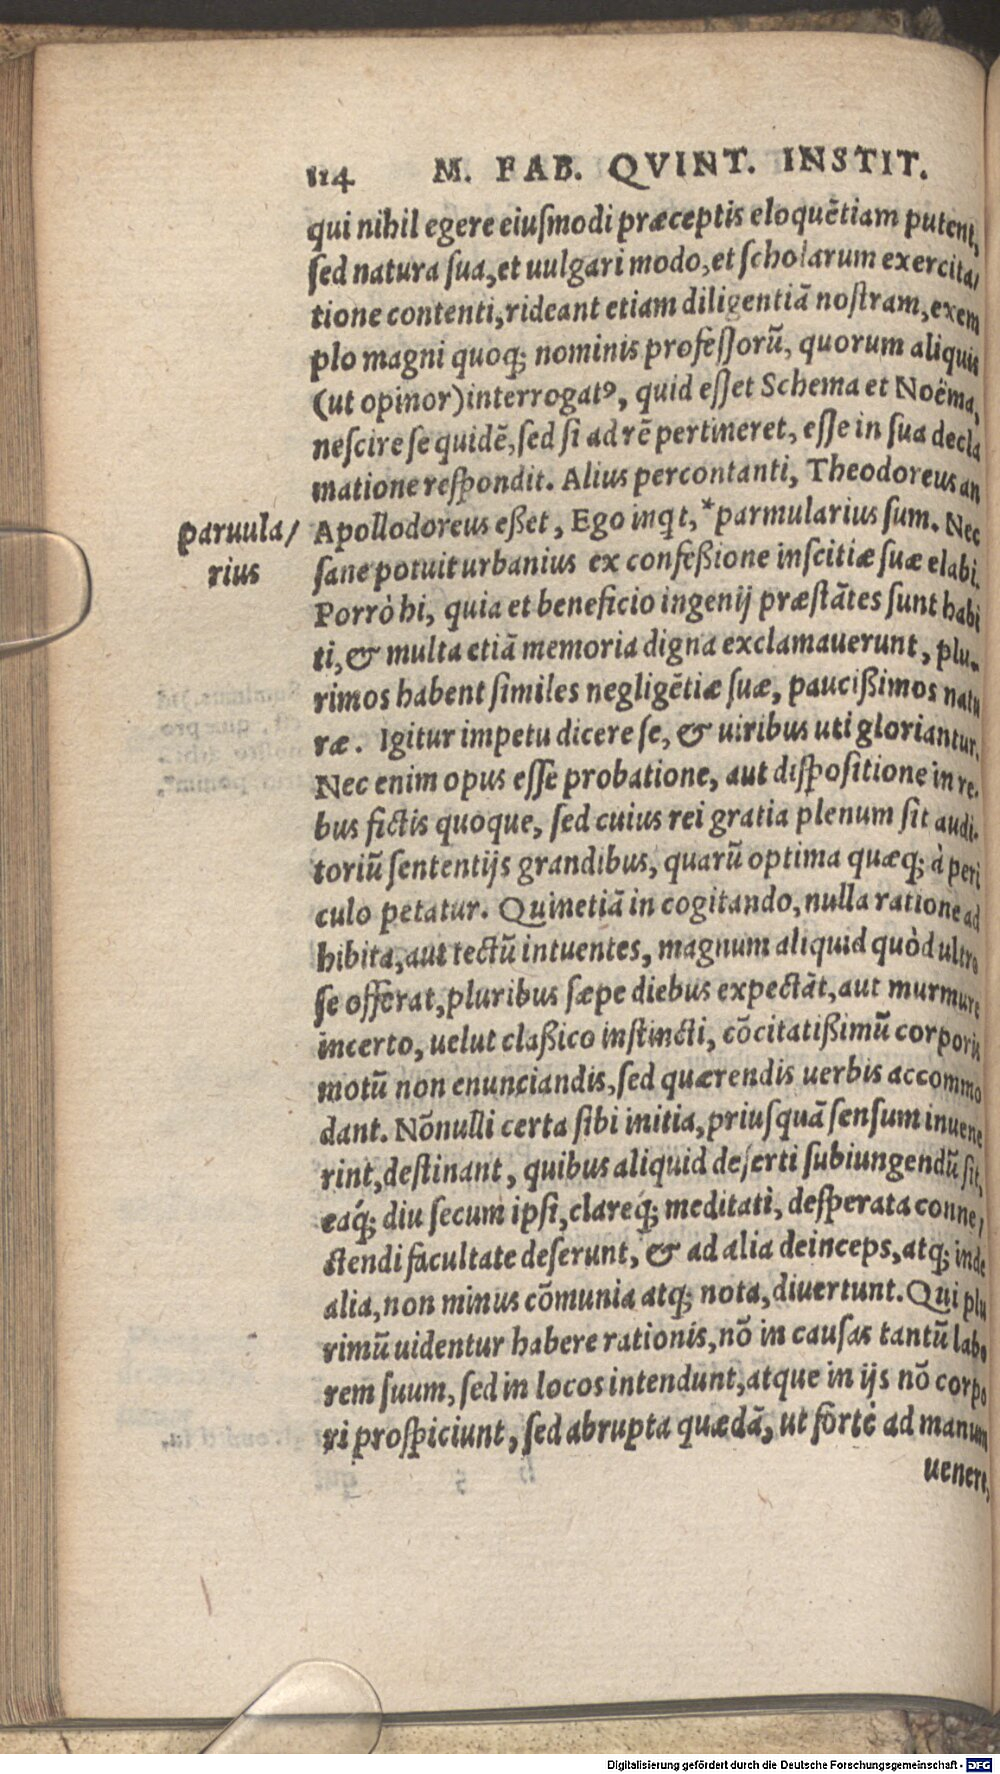 114 M. FAB. QVINT. INSTIT.
qui nihil egere eiuſmodi præceptis eloquẽtiam putent,
ſed natura ſua, et uulgari modo, et ſcholarum exercita/
tione contenti, rideant etiam diligentiã noſtram, exem
plo magni quoq; nominis profeſſorũ, quorum aliquis
(ut opinor) interrogatꝰ, quid eſſet Schema et Noëma,
neſcire ſe quidẽ, ſed ſi ad rẽ pertineret, eſſe in ſua decla
matione reſpondit. Alius percontanti, Theodoreus an
Apollodoreus eßet, Ego inqt, *parmularius ſum. Nec
paruula/
rius
ſane potuit urbanius ex confeßione inſcitiæ ſuæ elabi.
Porrò hi, quia et beneficio ingenij præſtãtes ſunt habi
ti, & multa etiã memoria digna exclamauerunt, plu-
rimos habent ſimiles negligẽtiæ ſuæ, paucißimos natu
ræ. Igitur impetu dicere ſe, & uiribus uti gloriantur.
Nec enim opus eſſe probatione, aut diſpoſitione in re-
bus fictis quoque, ſed cuius rei gratia plenum ſit audi-
toriũ ſententijs grandibus, quarũ optima quæq; à peri
culo petatur. Quinetiã in cogitando, nulla ratione ad
hibita, aut tectũ intuentes, magnum aliquid quòd ultro
ſe offerat, pluribus ſæpe diebus expectãt, aut murmure
incerto, uelut claßico inſtincti, cõcitatißimũ corporis
motũ non enunciandis, ſed quærendis uerbis accommo
dant. Nõnulli certa ſibi initia, priuſquã ſenſum inuene
rint, deſtinant, quibus aliquid deſerti ſubiungendũ ſit,
eaq́; diu ſecum ipſi, clareq́; meditati, deſperata conne/
ctendi facultate deſerunt, & ad alia deinceps, atq; inde
alia, non minus cõmunia atq; nota, diuertunt. Qui plu
rimũ uidentur habere rationis, nõ in cauſas tantũ labo
rem ſuum, ſed in locos intendunt, atque in ijs nõ corpo
ri proſpiciunt, ſed abrupta quædã, ut fortè ad manum
uenere,
Digitalisierung gefördert durch die Deutsche Forschungsgemeinschaft - DFG